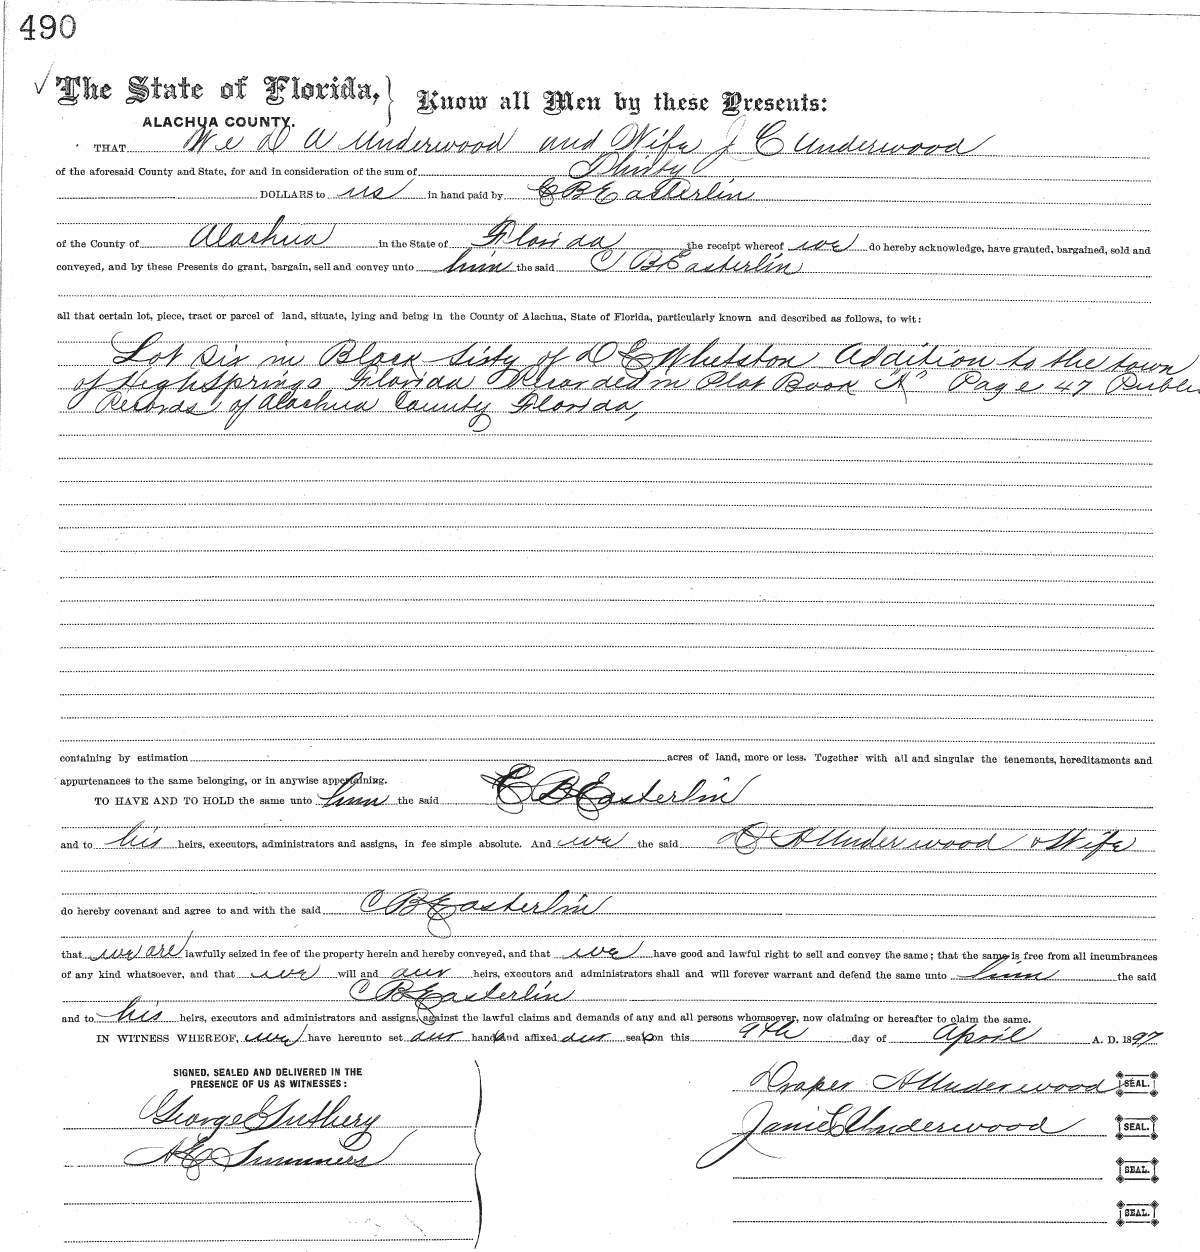 490
✓ The State of Florida, } Know all Men by these Presents:
ALACHUA COUNTY.
THAT We D A Underwood and Wife J C Underwood
of the aforesaid County and State, for and in consideration of the sum of Thirty
DOLLARS to us in hand paid by C B Easterlin
of the County of Alachua in the State of Florida the receipt whereof we do hereby acknowledge, have granted, bargained, sold and
conveyed, and by these Presents do grant, bargain, sell and convey unto him the said C B Easterlin
all that certain lot, piece, tract or parcel of land, situate, lying and being in the County of Alachua, State of Florida, particularly known and described as follows, to wit:
Lot Six in Block Sixty of D E Whetston Addition to the town
of High Springs Florida Recorded in Plat Book "A" Page 47 Public
Records of Alachua County Florida,
containing by estimation acres of land, more or less. Together with all and singular the tenements, hereditaments and
appurtenances to the same belonging, or in anywise appertaining.
TO HAVE AND TO HOLD the same unto him the said C B Easterlin
and to his heirs, executors, administrators and assigns, in fee simple absolute. And we the said D A Underwood & Wife
do hereby covenant and agree to and with the said C B Easterlin
that we are lawfully seized in fee of the property herein and hereby conveyed, and that we have good and lawful right to sell and convey the same; that the same is free from all incumbrances
of any kind whatsoever, and that we will and our heirs, executors and administrators shall and will forever warrant and defend the same unto him the said
C B Easterlin
and to his heirs, executors and administrators and assigns, against the lawful claims and demands of any and all persons whomsoever, now claiming or hereafter to claim the same.
IN WITNESS WHEREOF, we have hereunto set our hands and affixed our seals on this 9th day of April A. D. 1897
SIGNED, SEALED AND DELIVERED IN THE
PRESENCE OF US AS WITNESSES:
Draper A Underwood SEAL.
George E
Janie C Underwood SEAL.
A E Summers
SEAL.
SEAL.